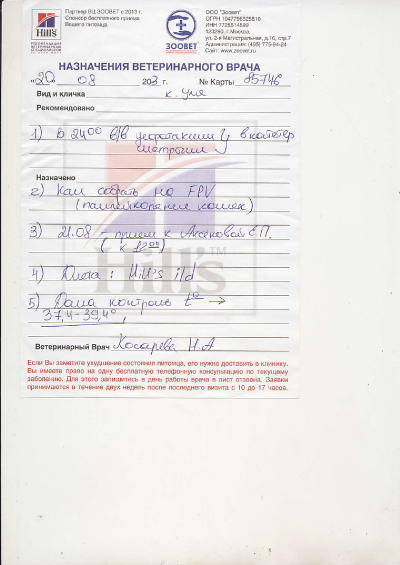 Hill's
Партнер ВЦ ЗООВЕТ с 2013 г.
Спонсор бесплатного приема
Вашего питомца
ЗООВЕТ
ООО "Зоовет"
ОГРН 1047796325810
ИНН 7728514599
123290, г.Москва
ул. 2-я Магистральная, д.16, стр.7
Администрация: (495) 775-94-24
Сайт: www.zoovet.ru
НАЗНАЧЕНИЯ ВЕТЕРИНАРНОГО ВРАЧА
«20» 08 2013 г. № Карты 85746
Вид и кличка к. Уля
Рекомендовано
1) В 24⁰⁰ в/в цефотаксим в катетер
Назначено
2) Кал собрать на FPV
(панлейкопения кошек)
3) 21.08 - прием к Аксеновой Е.П.
( к 12⁰⁰)
4) Диета: Hill's i/d
5) Дома контроль t° →
37,4-39,4°
Hill's™
Ветеринарный Врач Косарева Н.А
Если Вы заметите ухудшение состояния питомца, его нужно доставить в клинику.
Вы имеете право на одну бесплатную телефонную консультацию по текущему
заболеванию. Для этого запишитесь в день работы врача в лист отзвона. Заявки
принимаются в течение двух недель после последнего визита с 10 до 17 часов.